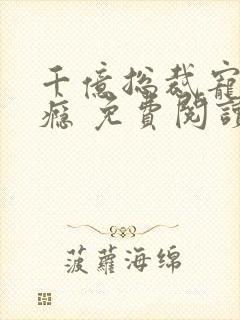 千億总裁寵
癮 免費閱讀
菠蘿海绵